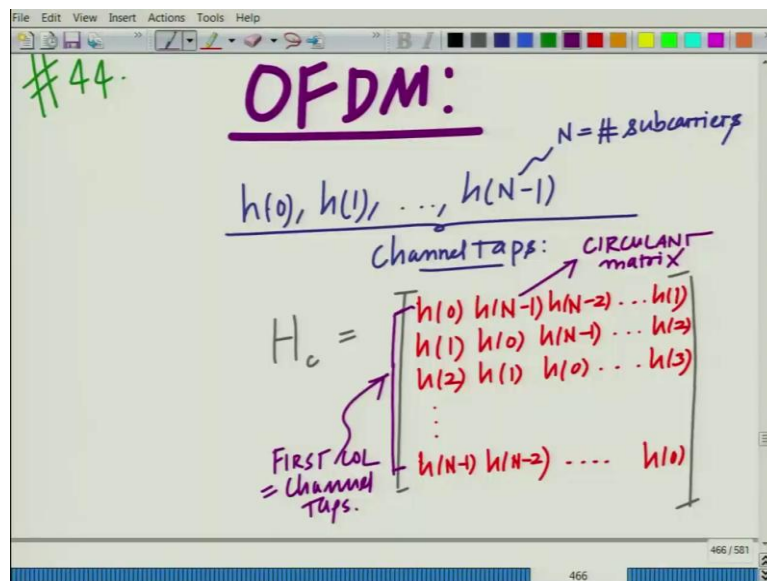 File Edit View Insert Actions Tools Help
B I
#44.
OFDM:
N = # subcarriers
h(0), h(1), ..., h(N-1)
Channel Taps:
CIRCULANT
matrix
H_c =
h(0) h(N-1) h(N-2) ... h(1)
h(1) h(0) h(N-1) ... h(2)
h(2) h(1) h(0) ... h(3)
⋮
h(N-1) h(N-2) .... h(0)
FIRST COL
= Channel
Taps.
466 / 581
466